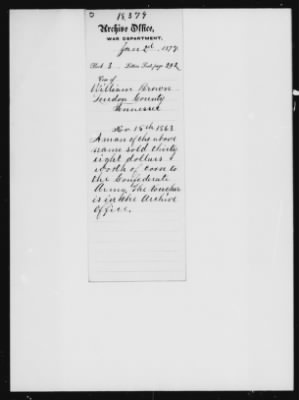 18379
Archive Office,
WAR DEPARTMENT,
Jan 2d, 1877
Book 3 — Letters Sent page 292
Case of
William Brown
Loudon County
Tennessee
Nov 15th 1863
A man of the above
name sold thirty
eight dollars
worth of corn to
the Confederate
Army. The voucher
is in the Archive
Office.